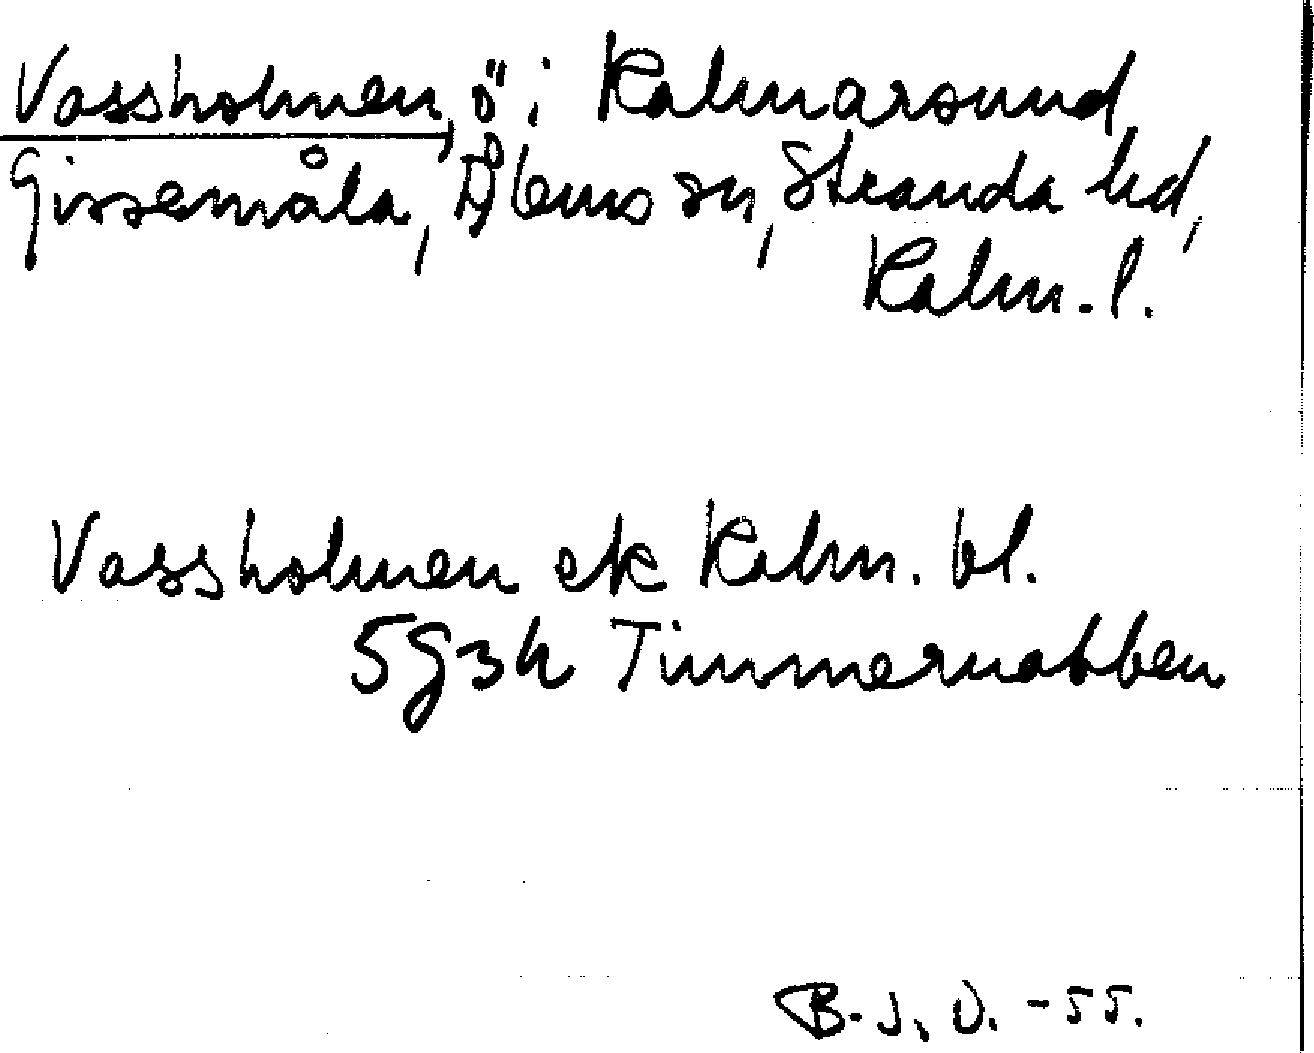 Vassholmen, ö i Kalmarsund
Gissemåla, Ålems sn, Stranda hd,
Kalm. l.
Vassholmen ek Kalm. bl.
5g3h Timmernabben
B-J. O. -55.